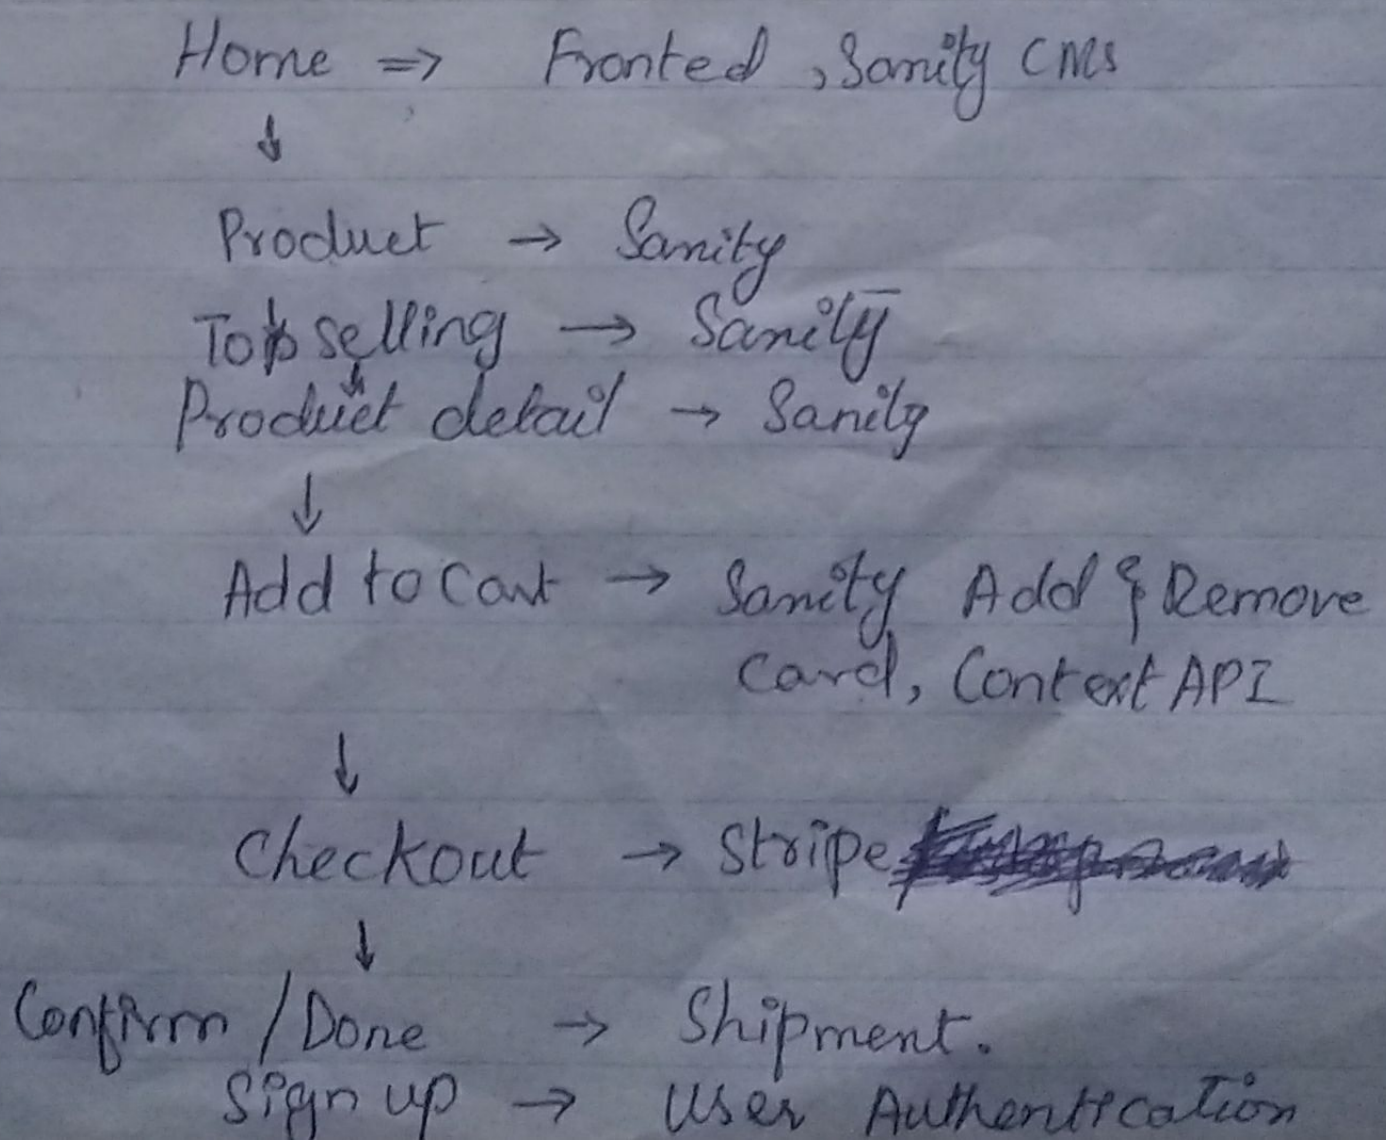 Home => Fronted , Sanity CMS
↓
Product → Sanity
Top selling → Sanity
↓
Product detail → Sanity
↓
Add to Cart → Sanity Add & Remove
Card, Context API
↓
Checkout → Stripe
↓
Confirm / Done → Shipment.
Sign up → User Authentication